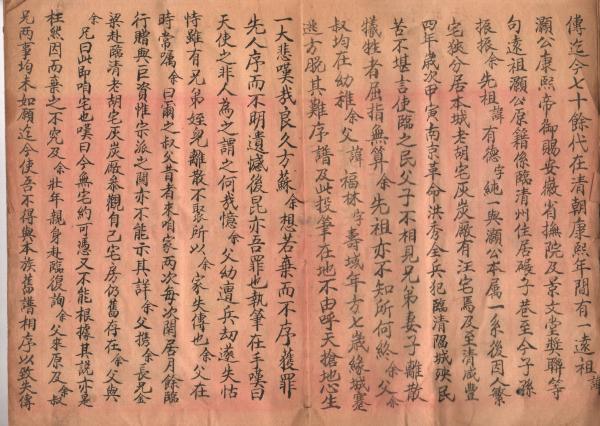 傳迄今七十餘代在清朝康熙年間有一遠祖諱
灝公康熙帝御賜安徽省撫院及景文堂獎聯等
句遠祖灝公原籍係臨清州住居磚子巷至今子孫
振振余先祖諱有德字純一與灝公本属一系後因人繁
宅狹分居本城老胡宅灰炭廠有汪宅焉及至清咸豐
四年歲次甲寅南京革命洪秀全兵犯臨清陷城殃民
苦不堪言使臨之民父子不相見兄弟妻子離散
犧牲者屈指無算余先祖亦不知所何終余父余
叔均在幼稚余父諱福林字壽域年方七歲緣城蹇
逃方脱其難序譜及此投筆在地不由呼天搶地心生
一大悲嘆哉良久方蘇余想若棄而不序獲罪
先人序而不明遺憾後昆亦吾罪也執筆在手嘆曰
天使之非人為之謂之何哉憶余父幼遭兵刼遂失怙
恃雖有兄弟姪兒離散不聚所以余家失傳也余父在
時常嘱余曰爾之叔父昔者来咱家两次每次閑居月餘臨
行贈與巨資惟宗派之関亦不能示其詳余父携余長兄金
梁赴臨清老胡宅灰炭廠泰觀自己宅房仍舊存在余父與
余兄曰此即咱宅也嘆曰今無宅約可憑又不能根據其説亦是
枉然因而棄之不究及余壯年親身赴臨復詢余父來原及余叔
兄两事均未如願迄今使吾不得與本族舊譜相序以致失傳